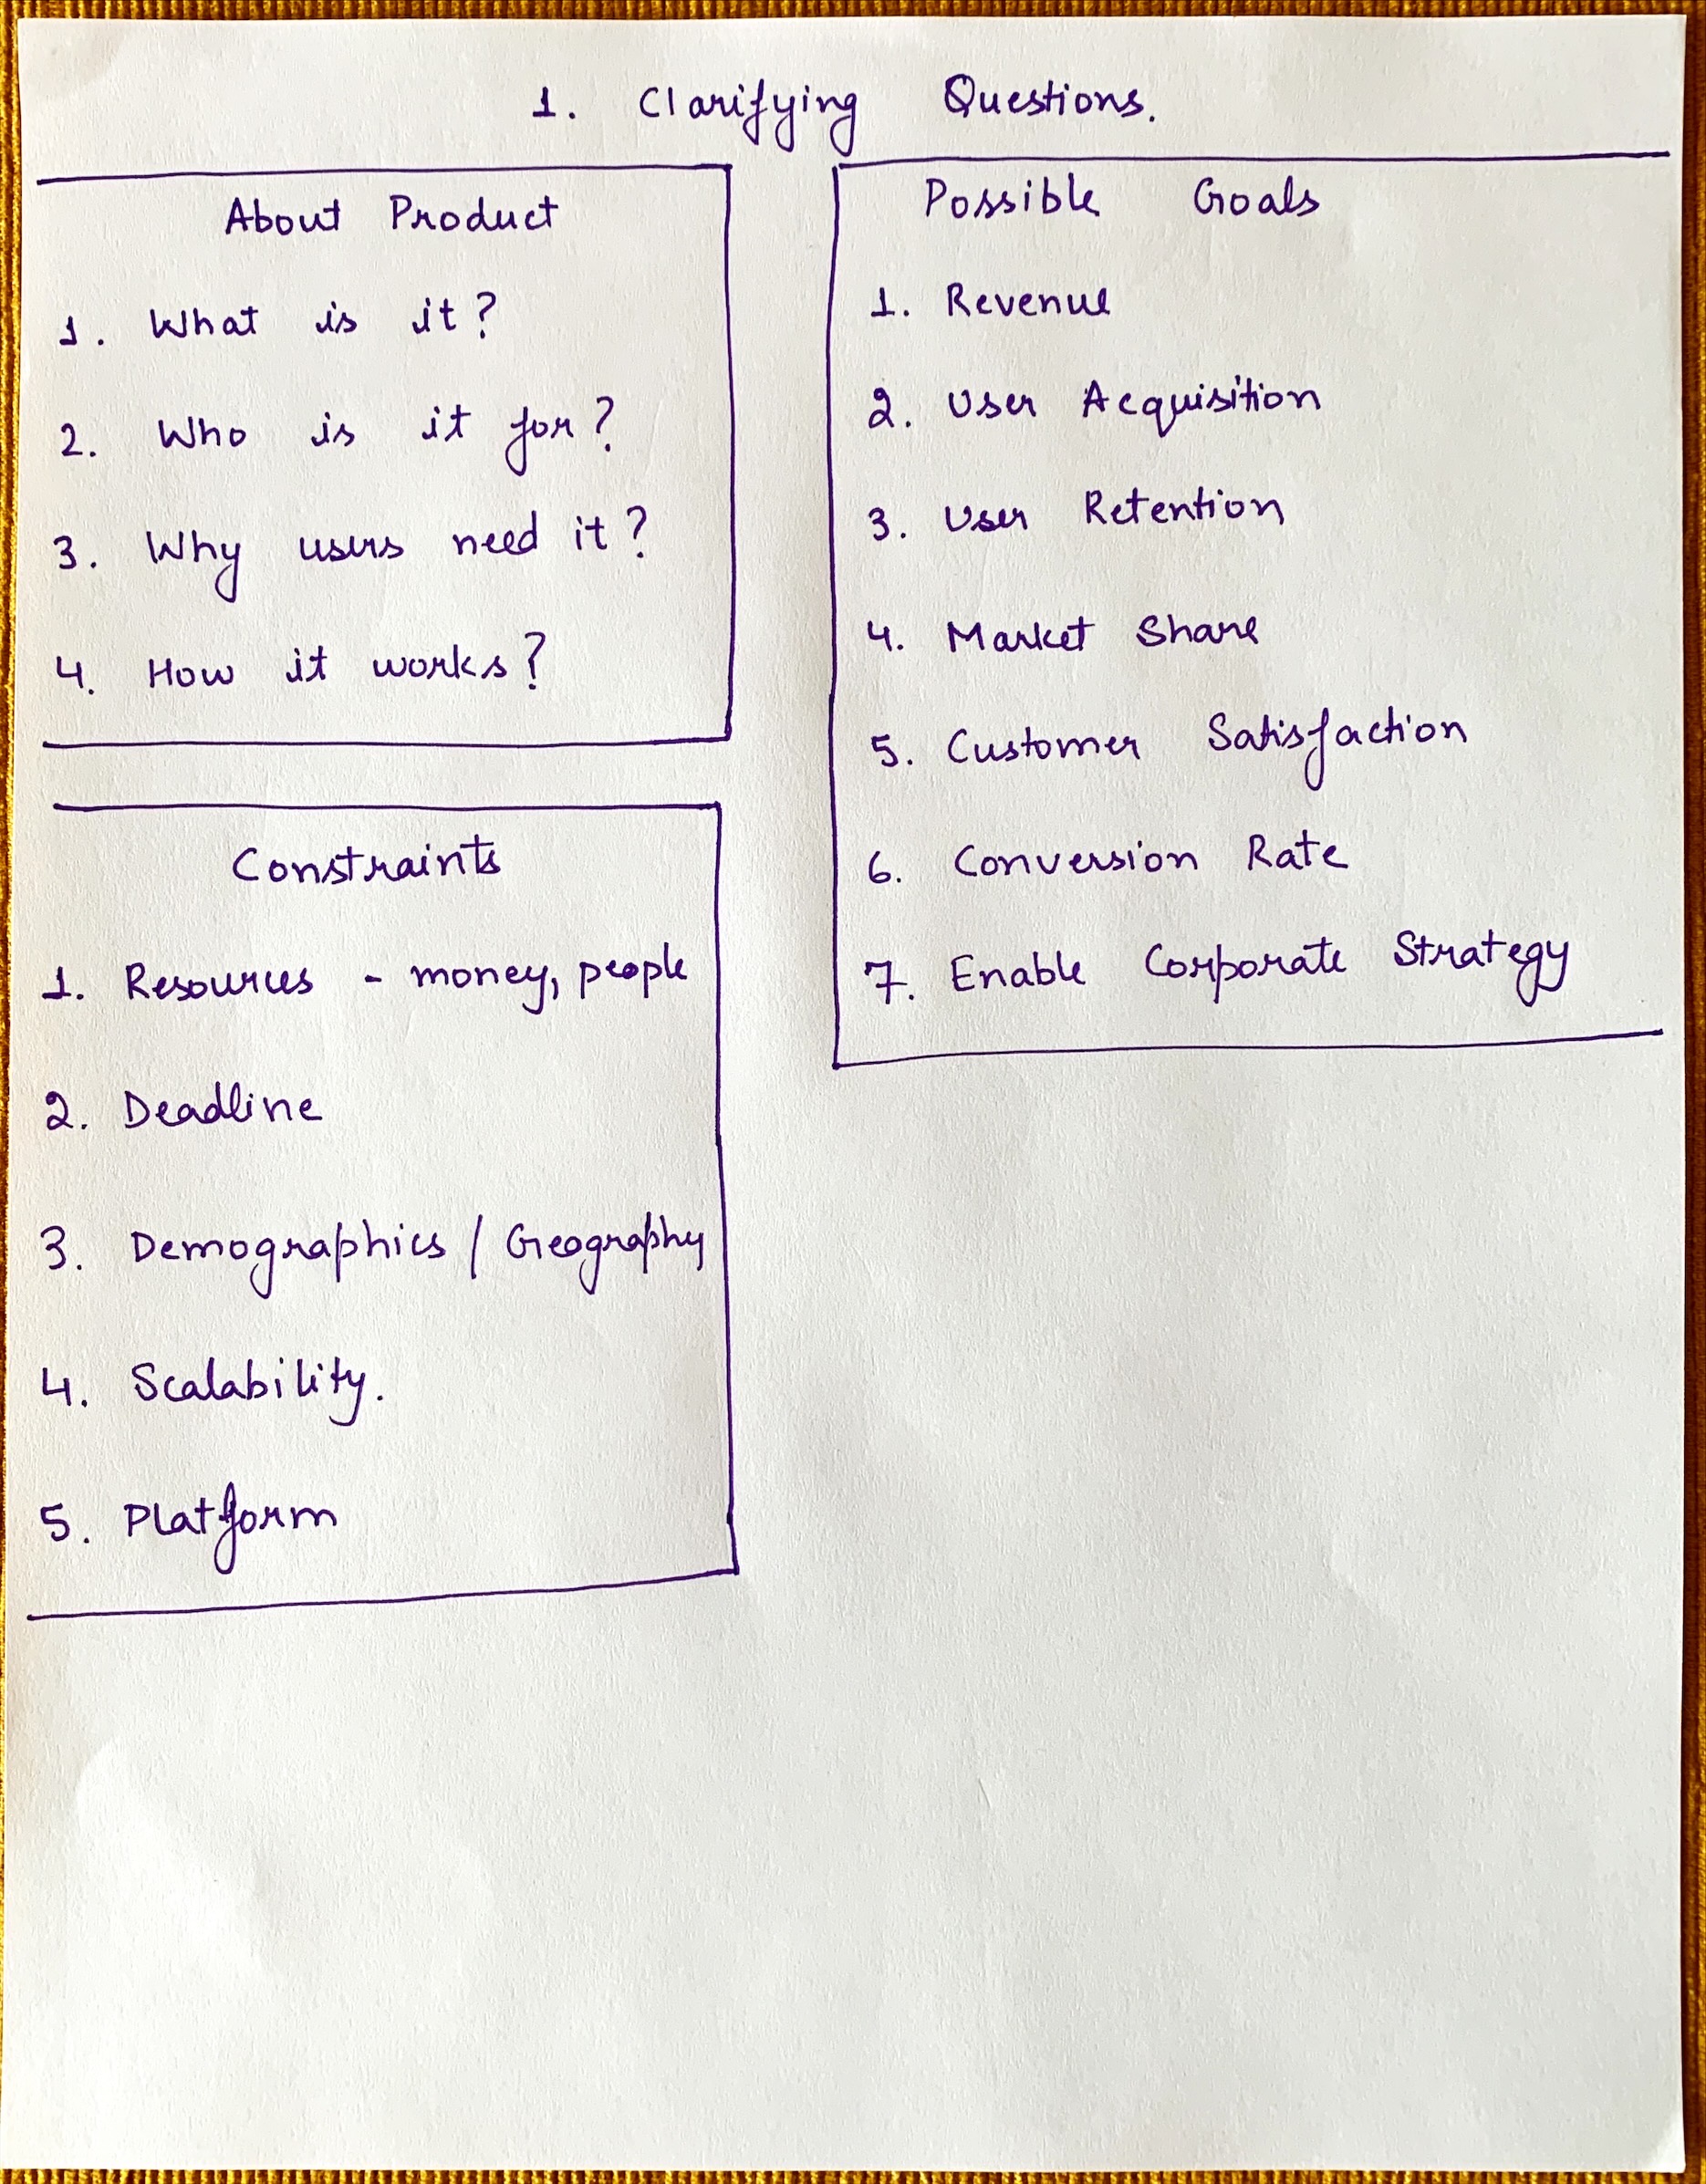 1. Clarifying Questions.
About Product
1. What is it?
2. Who is it for?
3. Why users need it?
4. How it works?
Constraints
1. Resources - money, people
2. Deadline
3. Demographics / Geography
4. Scalability.
5. Platform
Possible Goals
1. Revenue
2. User Acquisition
3. User Retention
4. Market Share
5. Customer Satisfaction
6. Conversion Rate
7. Enable Corporate Strategy